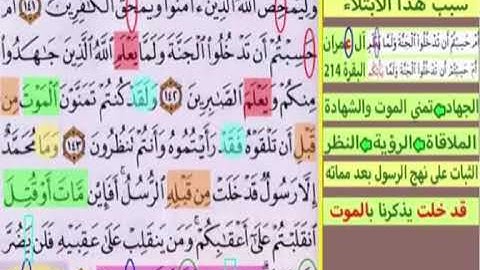 وَلِيُمَحِّصَ اللَّهُ الَّذِينَ آمَنُوا وَيَمْحَقَ الْكَافِرِينَ ١٤١ أَمْ
حَسِبْتُمْ أَن تَدْخُلُوا الْجَنَّةَ وَلَمَّا يَعْلَمِ اللَّهُ الَّذِينَ جَاهَدُوا
مِنكُمْ وَيَعْلَمَ الصَّابِرِينَ ١٤٢ وَلَقَدْ كُنتُمْ تَمَنَّوْنَ الْمَوْتَ مِن
قَبْلِ أَن تَلْقَوْهُ فَقَدْ رَأَيْتُمُوهُ وَأَنتُمْ تَنظُرُونَ ١٤٣ وَمَا مُحَمَّدٌ
إِلَّا رَسُولٌ قَدْ خَلَتْ مِن قَبْلِهِ الرُّسُلُ أَفَإِيْن مَّاتَ أَوْ قُتِلَ
انقَلَبْتُمْ عَلَىٰ أَعْقَابِكُمْ وَمَن يَنقَلِبْ عَلَىٰ عَقِبَيْهِ فَلَن يَضُرَّ
سبب هذا الابتلاء
أَمْ حَسِبْتُمْ أَن تَدْخُلُوا الْجَنَّةَ وَلَمَّا آل عمران
أَمْ حَسِبْتُمْ أَن تَدْخُلُوا الْجَنَّةَ وَلَمَّا البقرة 214
الجهاد تمنى الموت والشهادة
الملاقاة الرؤية النظر
الثبات على نهج الرسول بعد مماته
قد خلت يذكرنا بالموت